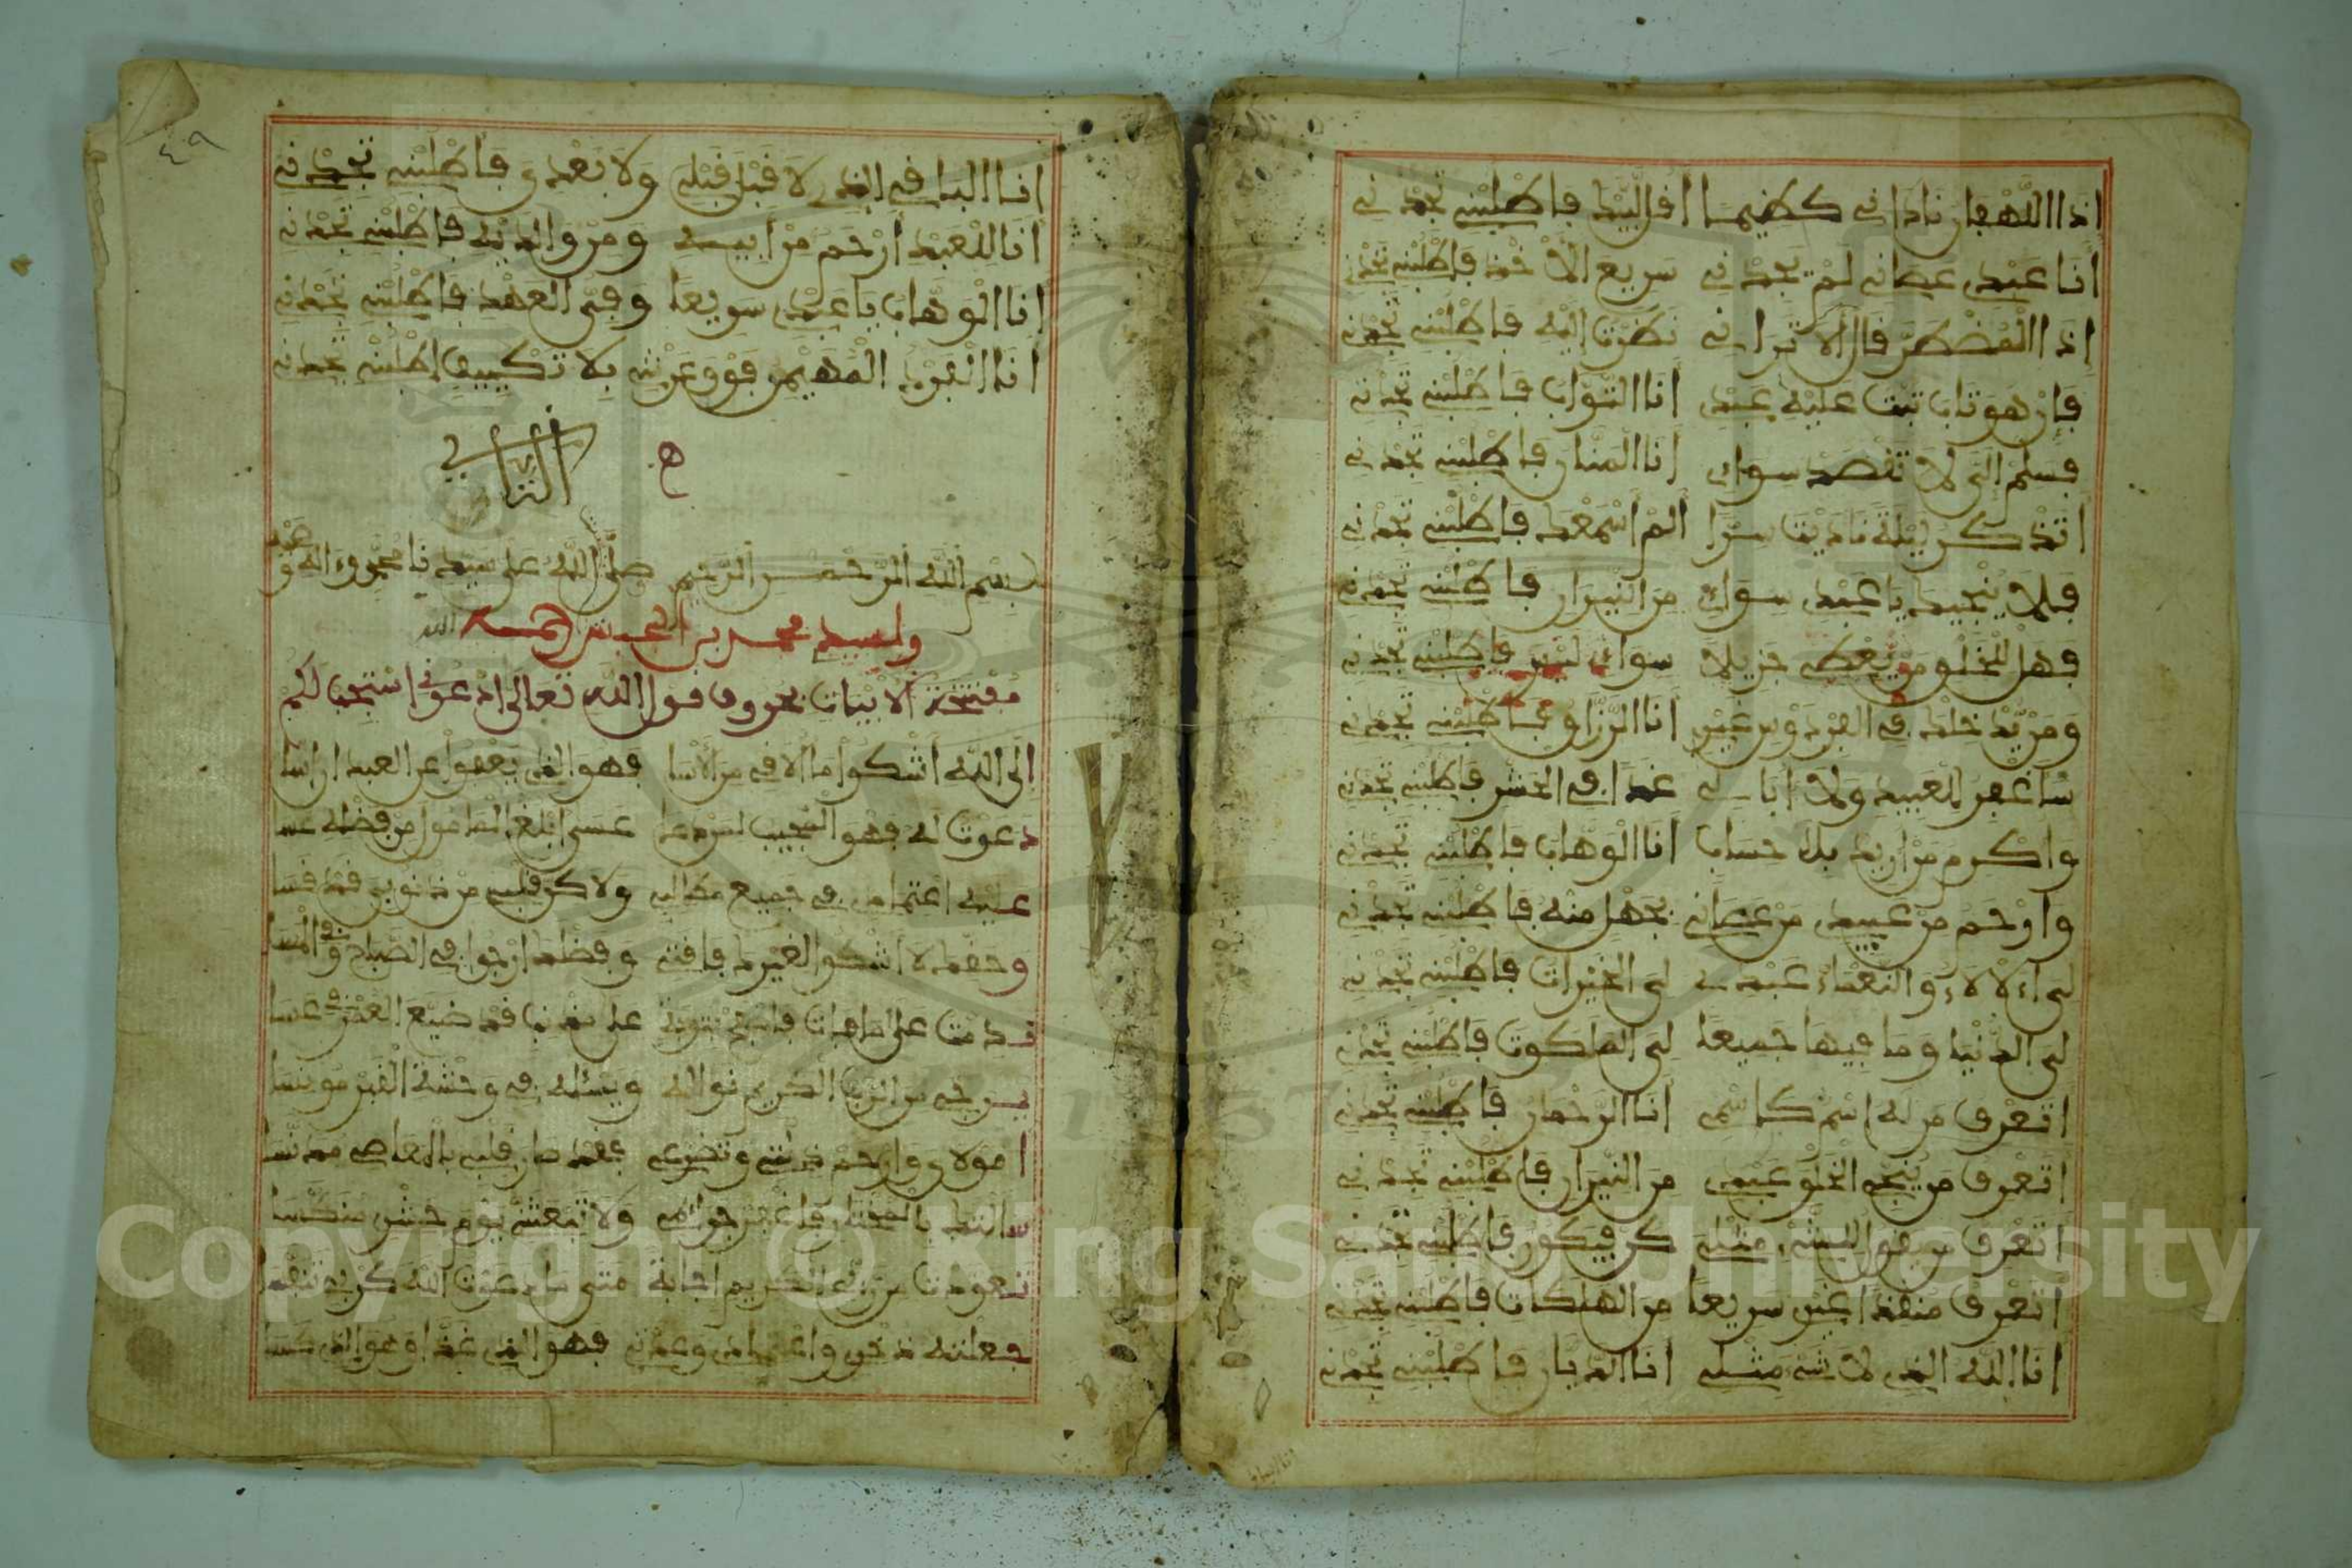 إذا اللهفان ناداني كظيما أقل لبيك فاطلبني تجدني
أنا عبدي عصاني لم تجدني سريع الأخذ فاطلبني تجدني
إذا المضطر قال ألا تراني نظرت إليه فاطلبني تجدني
فإن هو تاب تبت عليه عبدي أنا التواب فاطلبني تجدني
فسلم إلي لا تقصد سواي أنا المنان فاطلبني تجدني
أتذكر ليلة ناديت سرا ألم أسمعك فاطلبني تجدني
فلا ينجيك يا عبدي سواي من النيران فاطلبني تجدني
فهل في الخلق من يعطي جزيلا سواي فاطلبني تجدني
أنا الرزاق فاطلبني تجدني
سأغفر للعبيد ولا أبالي غدا في الحشر فاطلبني تجدني
وأكرم من أريد بلا حساب أنا الوهاب فاطلبني تجدني
وأرحم من عبيدي من عصاني بجهل منه فاطلبني تجدني
لي الآلاء والنعماء عبدي لي الخيرات فاطلبني تجدني
لي الدنيا وما فيها جميعا لي الملكوت فاطلبني تجدني
أتعرف من له اسم كاسمي أنا الرحمان فاطلبني تجدني
أتعرف من ينجي الخلق عبدي من النيران فاطلبني تجدني
أتعرف من يقول لشيء مثلي كن فيكون فاطلبني تجدني
أتعرف منقذا غيري سريعا من الهلكات فاطلبني تجدني
أنا الله الذي لا شيء مثلي أنا الديان فاطلبني تجدني
٤٩
أنا الباقي الذي لا قبل قبلي ولا بعدي فاطلبني تجدني
أنا للعبد أرحم من أبيه ومن والديه فاطلبني تجدني
أنا الوهاب يا عبدي سريعا وفي العهد فاطلبني تجدني
أنا الفرد المهيمن فوق عرشي بلا تكييف اطلبني تجدني
بسم الله الرحمن الرحيم صلى الله على سيدنا محمد وءاله وصحبه
ولسيدي محمد بن الله
مفتتحة الأبيات بحروف قول الله تعالى ادعوني أستجب لكم
إلى الله أشكو ما ألاقي من الأسا فهو الذي يعفو عن العبد إن أسا
دعوت له فهو المجيب لمن دعا عسى أبلغ المأمول من فضله عسا
عليه اعتمادي في جميع مطالبي ولاكن قلبي من ذنوبي قد قسا
وحقك لا أشكو لغيرك فاقتي وفضلك أرجو في الصباح وفي المسا
ندمت على ما فات فامنن بتوبة على مذنب قد ضيع العمر في عسا
يرجي من الرب الكريم نواله ويسئله في وحشة القبر مونسا
أمولاي وارحم ذلتي وتضرعي فقد صار قلبي بالمعاصي مدنسا
سألتك بالمختار فاغفر جرائمي ولا يوم حشري منكسا
تعودت من ربي الكريم إجابة متى ما دعوت الله كربي تنفسا
جعلته ذخري واعتمادي وعدتي فهو الذي غذا وهو الذي كسا
Copyright © King Saud University